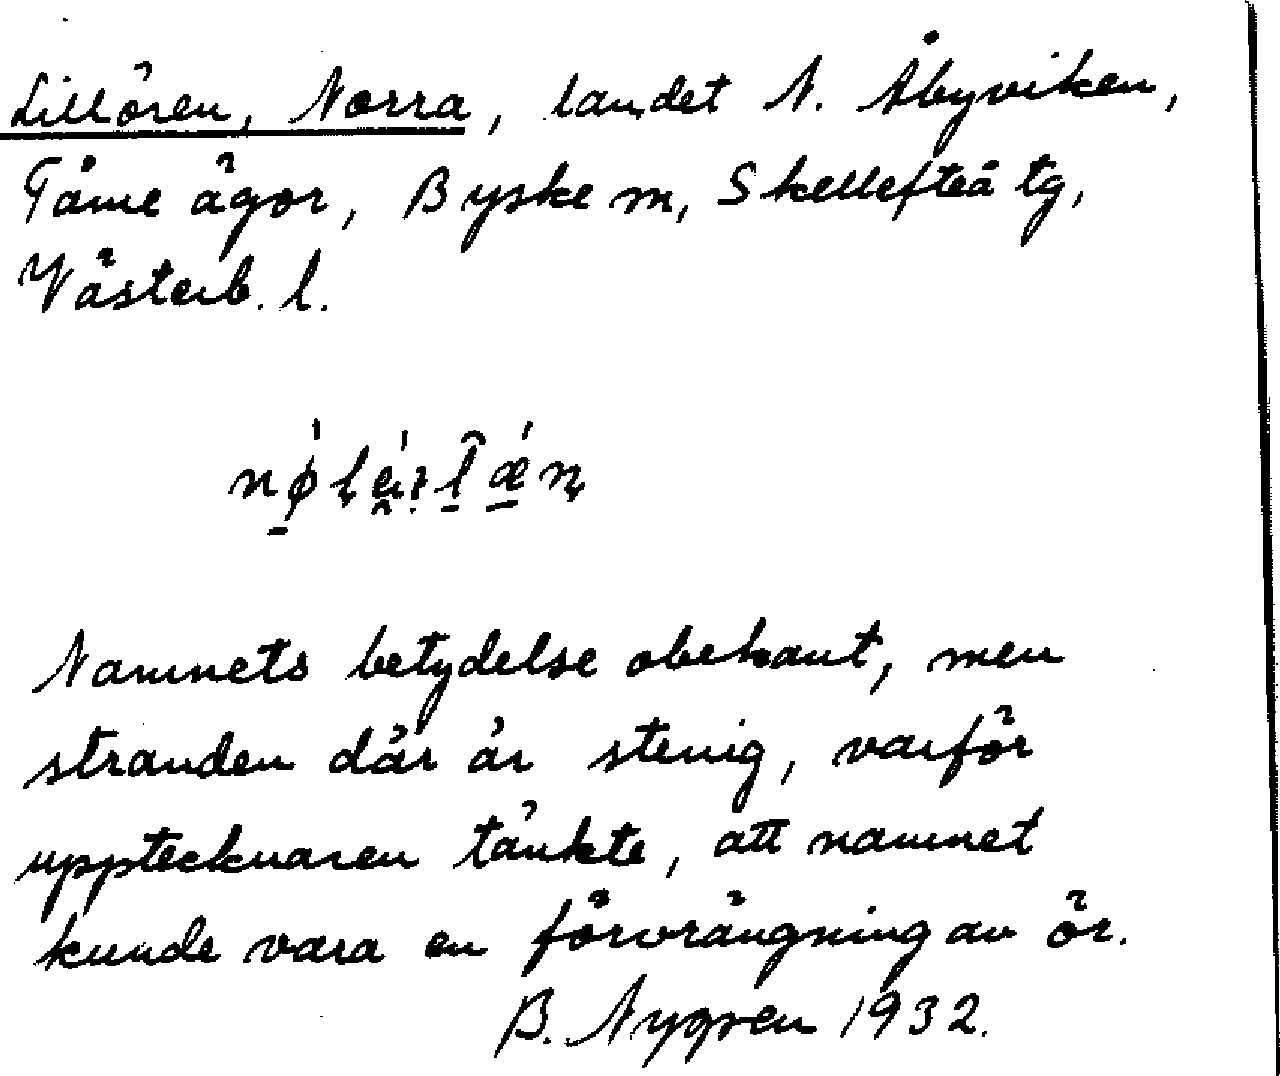 Lillören, Norra, landet N. Åbyviken,
Tåme ägor, Byske sn, Skellefteå tg,
Västerb. l.
Namnets betydelse obekant, men
stranden där är stenig, varför
upptecknaren tänkte, att namnet
kunde vara en förvrängning av ör.
B. Nygren 1932.